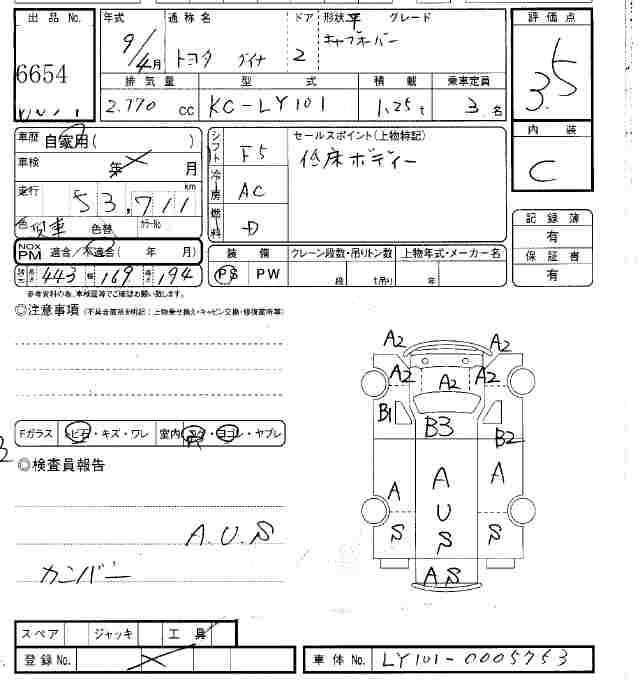 出品No. 6654
年式 9/4月
通称名 トヨタ ダイナ
ドア 2
形状 平 キャブオーバー
グレード
評価点 3.5
排気量 2.770 CC
型式 KC-LY101
積載 1.25 t
乗車定員 3 名
内装 C
車歴 自家用( )
車検 年 月
走行 53,711 km
色 色替 カラーNo
NOX PM 適合/不適合( 年 月)
長さ 443 幅 169 高さ 194
参考資料の為、車検証等でご確認お願い致します。
シフト F5
冷房 AC
燃料 D
セールスポイント(上物特記)
低床ボディー
装備 PS PW
クレーン段数・吊りトン数 段 t吊り
上物年式・メーカー名 年
記録簿 有
保証書 有
◎注意事項 (不具合箇所明記:上物乗せ換え・キャビン交換・修復箇所等)
Fガラス トビ石・キズ・ワレ 室内 コゲ・ヨゴレ・ヤブレ
◎検査員報告
A.U.S
カンバー
A2 A2
A2 A2 A2
B1 B3 B2
A A A
U
S S S
AS
スペア ジャッキ 工具
登録No.
車体No. LY101-0005753